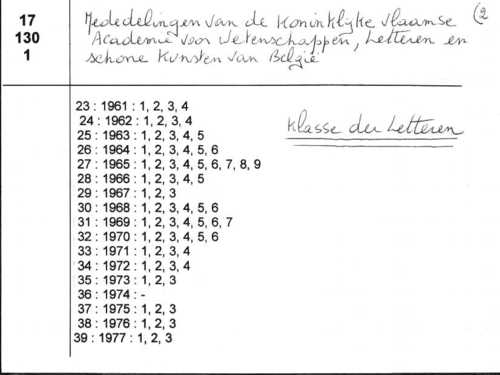 17
130
1
(2
Mededelingen van de Koninklyke Vlaamse
Academie voor Wetenschappen, Letteren en
schone Kunsten van België
Klasse der Letteren
23 : 1961 : 1, 2, 3, 4
24 : 1962 : 1, 2, 3, 4
25 : 1963 : 1, 2, 3, 4, 5
26 : 1964 : 1, 2, 3, 4, 5, 6
27 : 1965 : 1, 2, 3, 4, 5, 6, 7, 8, 9
28 : 1966 : 1, 2, 3, 4, 5
29 : 1967 : 1, 2, 3
30 : 1968 : 1, 2, 3, 4, 5, 6
31 : 1969 : 1, 2, 3, 4, 5, 6, 7
32 : 1970 : 1, 2, 3, 4, 5, 6
33 : 1971 : 1, 2, 3, 4
34 : 1972 : 1, 2, 3, 4
35 : 1973 : 1, 2, 3
36 : 1974 : -
37 : 1975 : 1, 2, 3
38 : 1976 : 1, 2, 3
39 : 1977 : 1, 2, 3